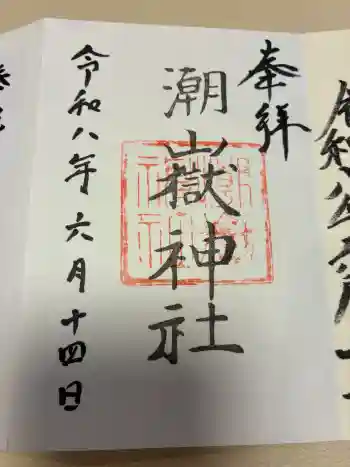 奉拝
潮山嶽神社
令和八年六月十四日